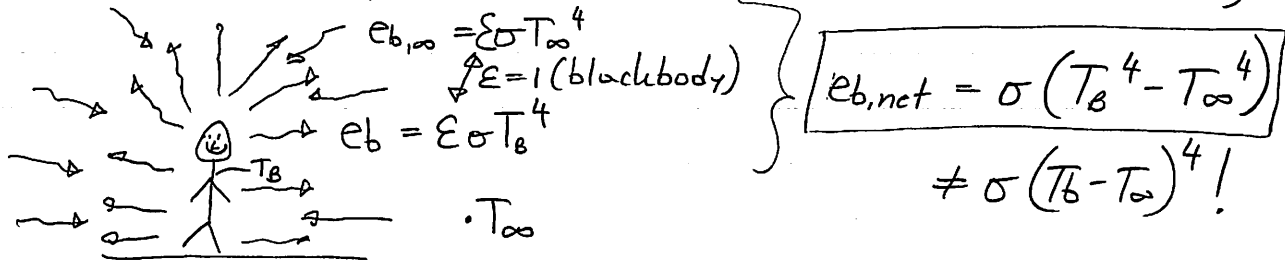 e_{b,∞} = εσT_∞^4
ε = 1 (blackbody)
e_b = εσT_B^4
T_B
·T_∞
e_{b,net} = σ(T_B^4 - T_∞^4)
≠ σ(T_b - T_∞)^4!